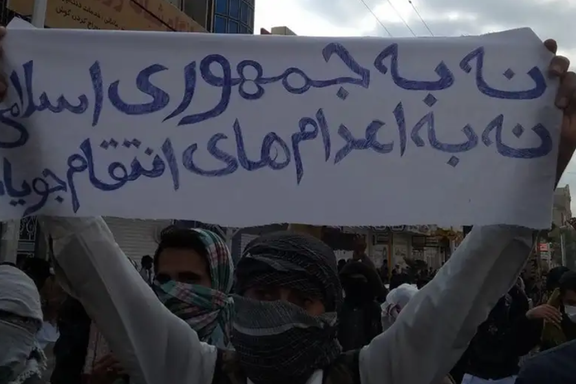 نه به جمهوری اسلامی
نه به اعدام های انتقام جویا